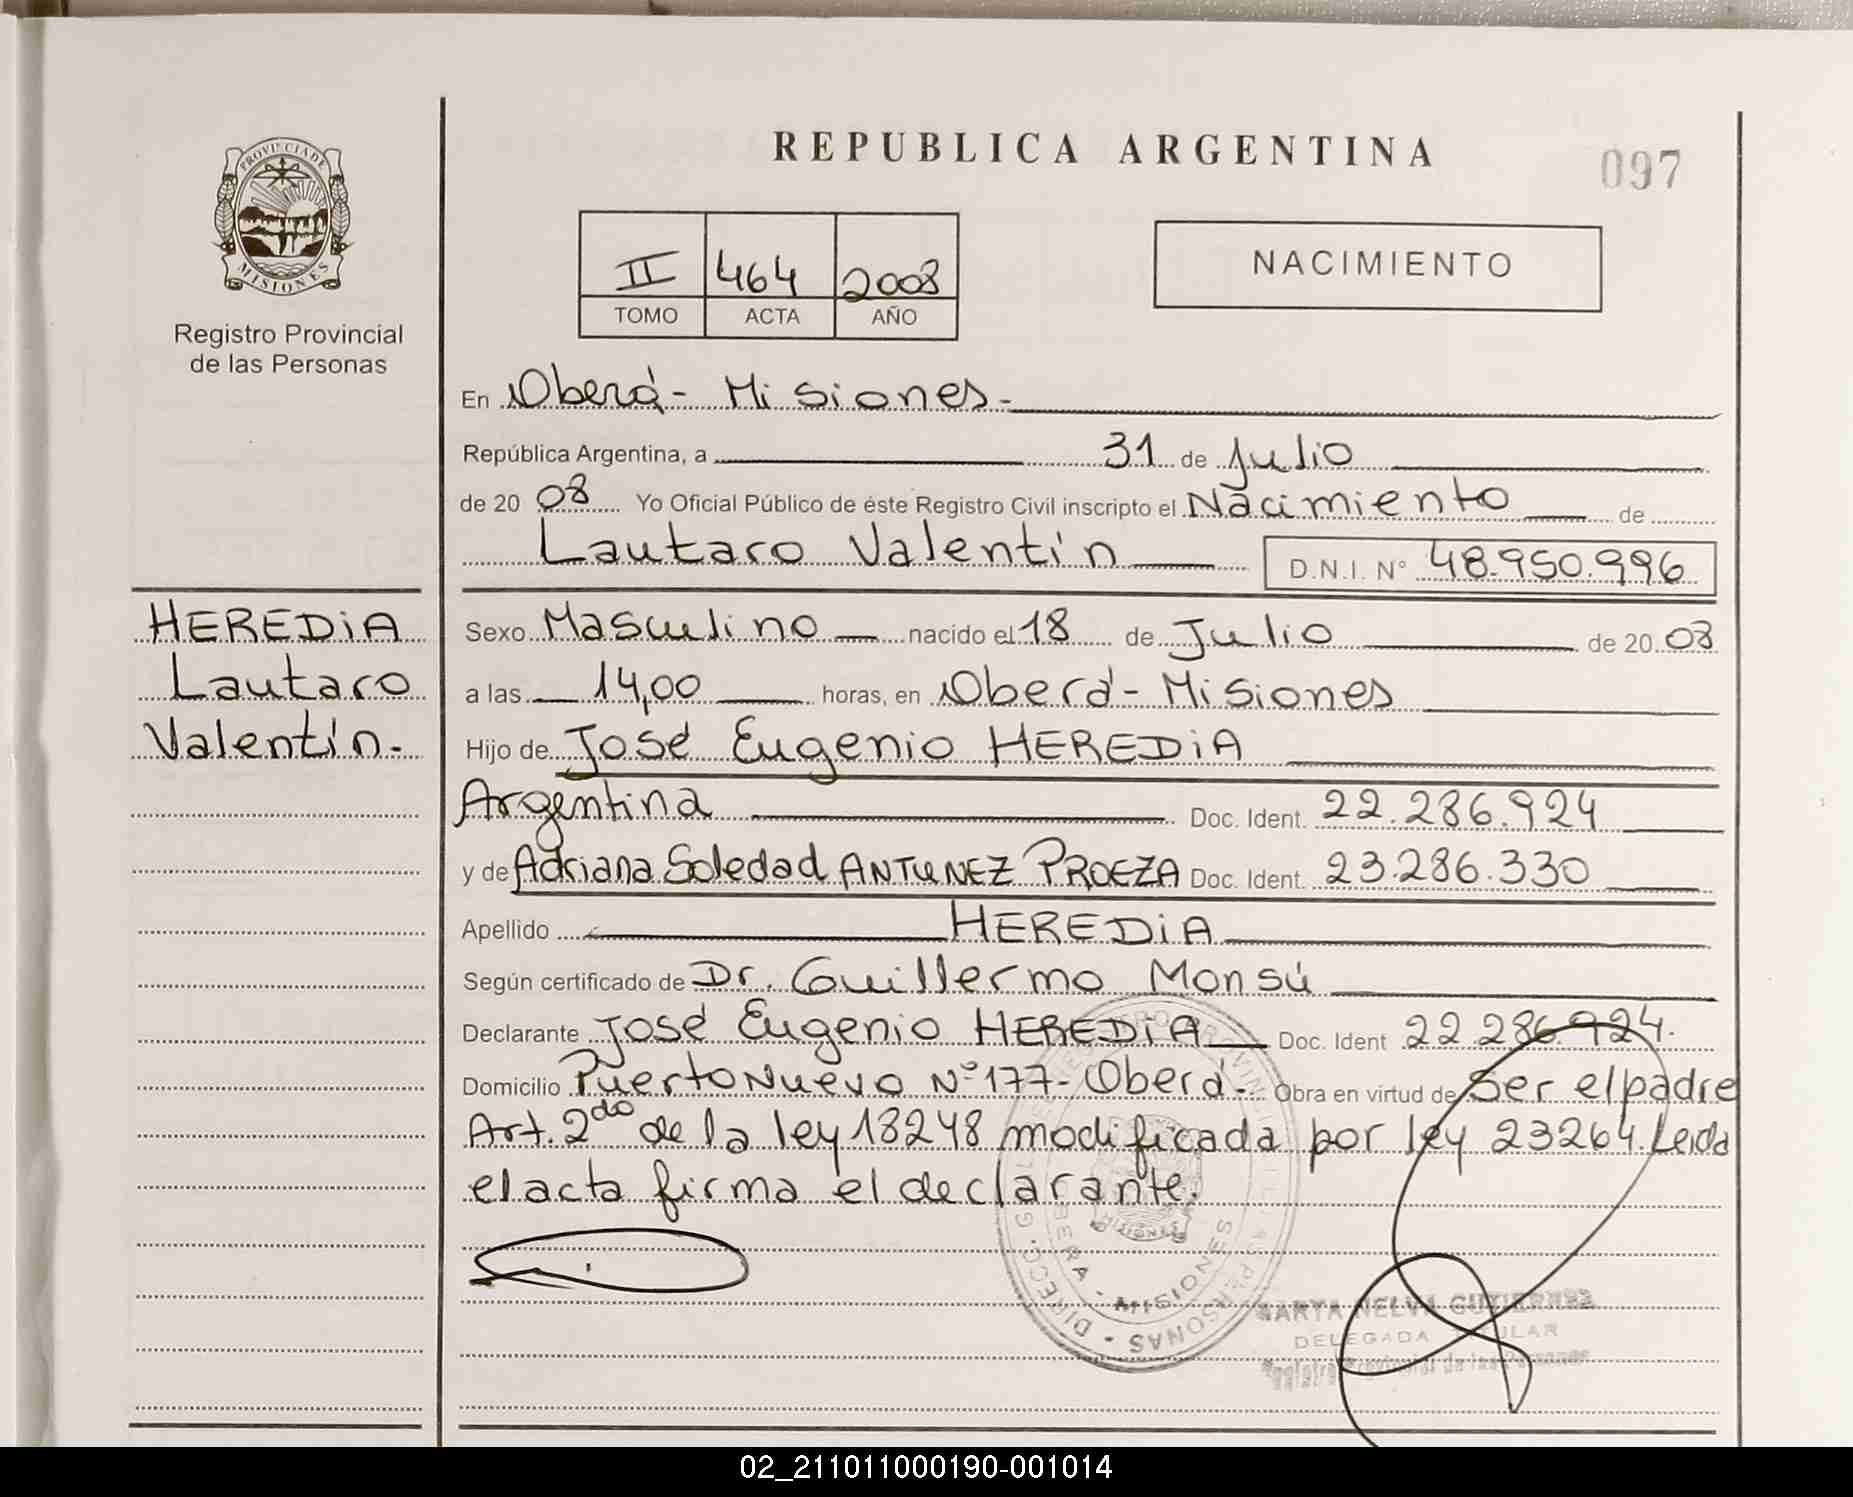 REPUBLICA ARGENTINA
097
PROVINCIA DE MISIONES
Registro Provincial
de las Personas
II 464 2008
TOMO ACTA AÑO
NACIMIENTO
En Oberá - Misiones.-
República Argentina, a 31 de Julio
de 20 08 Yo Oficial Público de éste Registro Civil inscripto el Nacimiento de
Lautaro Valentín D.N.I. N° 48.950.996
HEREDIA
Lautaro
Valentín.-
Sexo Masculino nacido el 18 de Julio de 20 08
a las 14,00 horas, en Oberá - Misiones
Hijo de José Eugenio HEREDIA
Argentina Doc. Ident. 22.286.924
y de Adriana Soledad ANTUNEZ PROEZA Doc. Ident. 23.286.330
Apellido HEREDIA
Según certificado de Dr. Guillermo Monsú
Declarante José Eugenio HEREDIA Doc. Ident 22.286.924.
Domicilio Puerto Nuevo N° 177 - Oberá.- Obra en virtud de Ser el padre
Art. 2do de la ley 18248 modificada por ley 23264. Leida
el acta firma el declarante.
OBERA - MISIONES
MARTA NELVA GUTIERREZ
DELEGADA TITULAR
Registro Provincial de las Personas
02_211011000190-001014